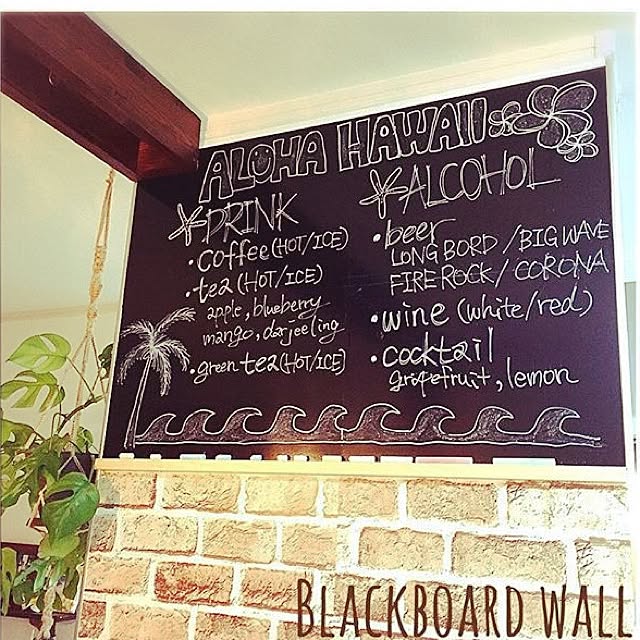 ALOHA HAWAII
DRINK
• coffee (HOT/ICE)
• tea (HOT/ICE)
apple, blueberry
mango, darjeeling
• green tea (HOT/ICE)
ALCOHOL
• beer
LONG BORD / BIG WAVE
FIRE ROCK / CORONA
• wine (white/red)
• cocktail
grapefruit, lemon
BLACKBOARD WALL